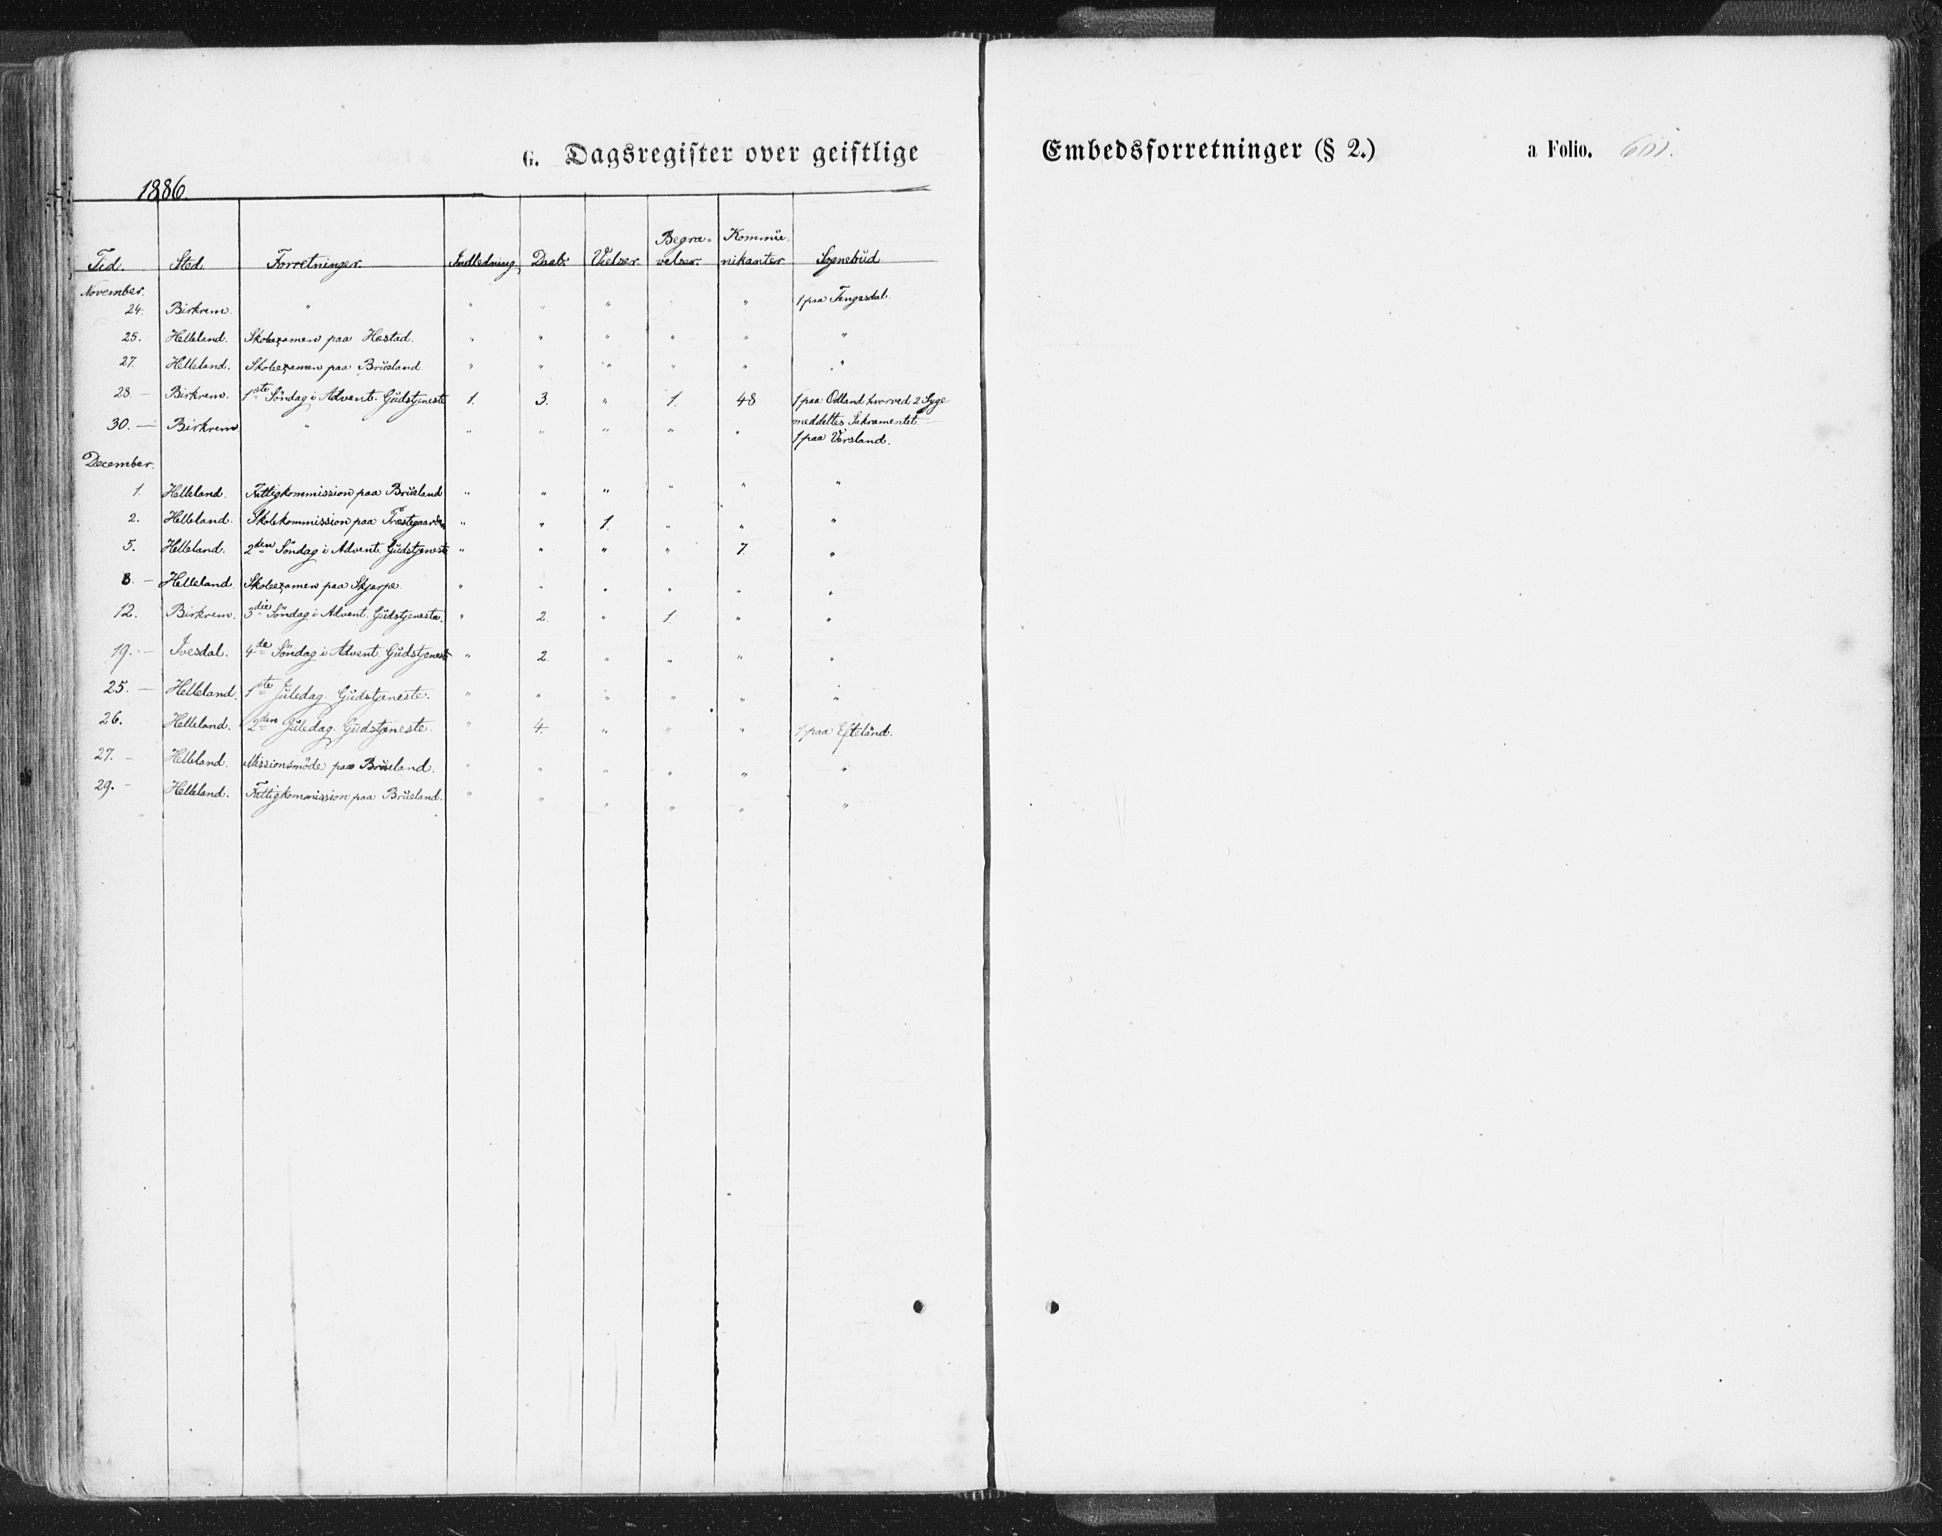 G. Dagsregister over geistlige Embedsforretninger (§ 2.) a Folio.
1886.
Tid. Sted. Forretninger. Indledning Daab. Vielser. Begravelser. Kommünikanter Sygebüd
November.
24. Birkrem. " " " " " 1 paa Tengesdal.
25. Helleland. Skoleexamen paa Hæstad. " " " " " "
27. Helleland. Skoleexamen paa Brüsland " " " " " "
28. — Birkrem. 1ste Söndag i Advent. Güdstjeneste 1. 3. " 1. 48 1 paa Ödland hvorved 2 Syge
meddeltes Sakramentet
30. — Birkrem " " " " " " 1 paa Versland.
December.
1. Helleland. Fattigkommission paa Brüsland " " " " " "
2. Helleland. Skolekommission paa Præstegaarden " " 1. " " "
5. Helleland. 2den Söndag i Advent. Güdstjeneste " " " " 7. "
8. — Helleland. Skoleexamen paa Skjerpe. " " " " " "
12. Birkrem. 3die Söndag i Advent. Güdstjeneste. " 2. " 1. " "
19. — Ivesdal. 4de Söndag i Advent. Güdstjeneste " 2. " " " "
25. — Helleland. 1ste Jüledag. Güdstjeneste. " " " " " "
26. Helleland. 2den Jüledag. Güdstjeneste. " 4. " " " 1 paa Efteland.
27. — Helleland. Missionsmöde paa Brüsland. " " " " " "
29. — Helleland. Fattigkommission paa Brüsland. " " " " " "